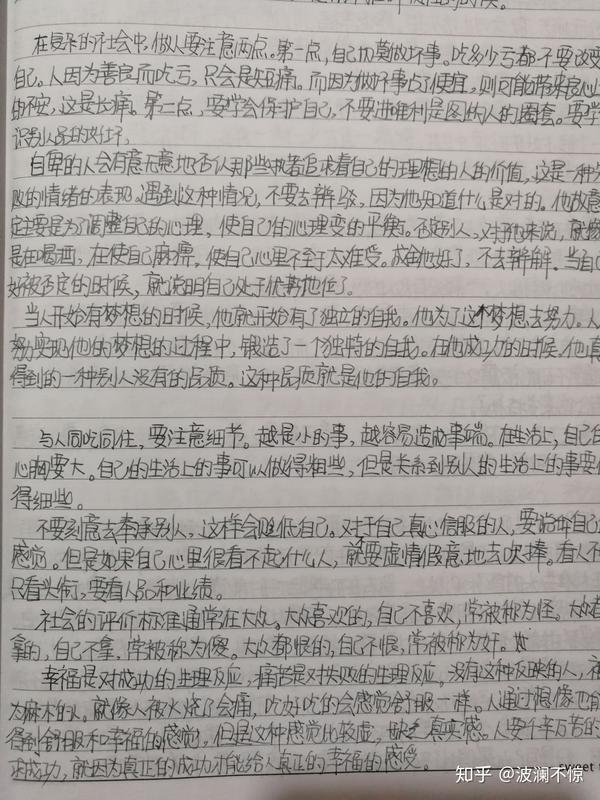 在复杂的社会中，做人要注意两点。第一点，自己切莫做坏事。吃多少亏都不要改变
自己。人因为善良而吃亏，只会是短痛。而因为做坏事占了便宜，则可能带来良心上
的不安，这是长痛。第二点，要学会保护自己，不要进唯利是图的人的圈套。要学
识别人品的好坏，
自卑的人会有意无意地否认那些执着追求着自己的理想的人的价值，这是一种失
败的情绪的表现。遇到这种情况，不要去辩驳，因为他知道什么是对的。他故意
定主要是为了调整自己的心理，使自己的心理变的平衡。否定别人，对于他来说，就像
是在喝酒，在使自己麻痹，使自己心里不至于太难受。成全他好了，不去辩解。当自己
好被否定的时候，就说明自己处于优势地位了。
当人开始有梦想的时候，他就开始有了独立的自我。他为了这个梦想去努力。人
努力实现他们的梦想的过程中，锻造了一个独特的自我。在他成功的时候，他真
得到的一种别人没有的品质。这种品质就是他的自我。
与人同吃同住，要注意细节。越是小的事，越容易造成事端。在生活上，自己的
心胸要大。自己的生活上的事可以做得粗些，但是关系到别人的生活上的事要做
得细些。
不要刻意去奉承别人，这样会贬低自己。对于自己真心信服的人，要说出自己
感觉。但是如果自己心里很看不起什么人，就要虚情假意地去吹捧。看人不
只看头衔，要看人品和业绩。
社会的评价标准通常在大众。大众喜欢的，自己不喜欢，常被称为怪。大众都
拿的，自己不拿，常被称为傻。大众都恨的，自己不恨，常被称为奸。
幸福是对成功的生理反应，痛苦是对失败的生理反应。没有这种反映的人，被
为麻木的人。就像人被火烧了会痛，吃好吃的会感觉舒服一样。人通过想像也能
得到舒服和幸福的感觉，但是这种感觉比较虚，缺乏真实感。人要千辛万苦的
求成功，就因为真正的成功才能给人真正的幸福的感受。
sweet
知乎 @波澜不惊